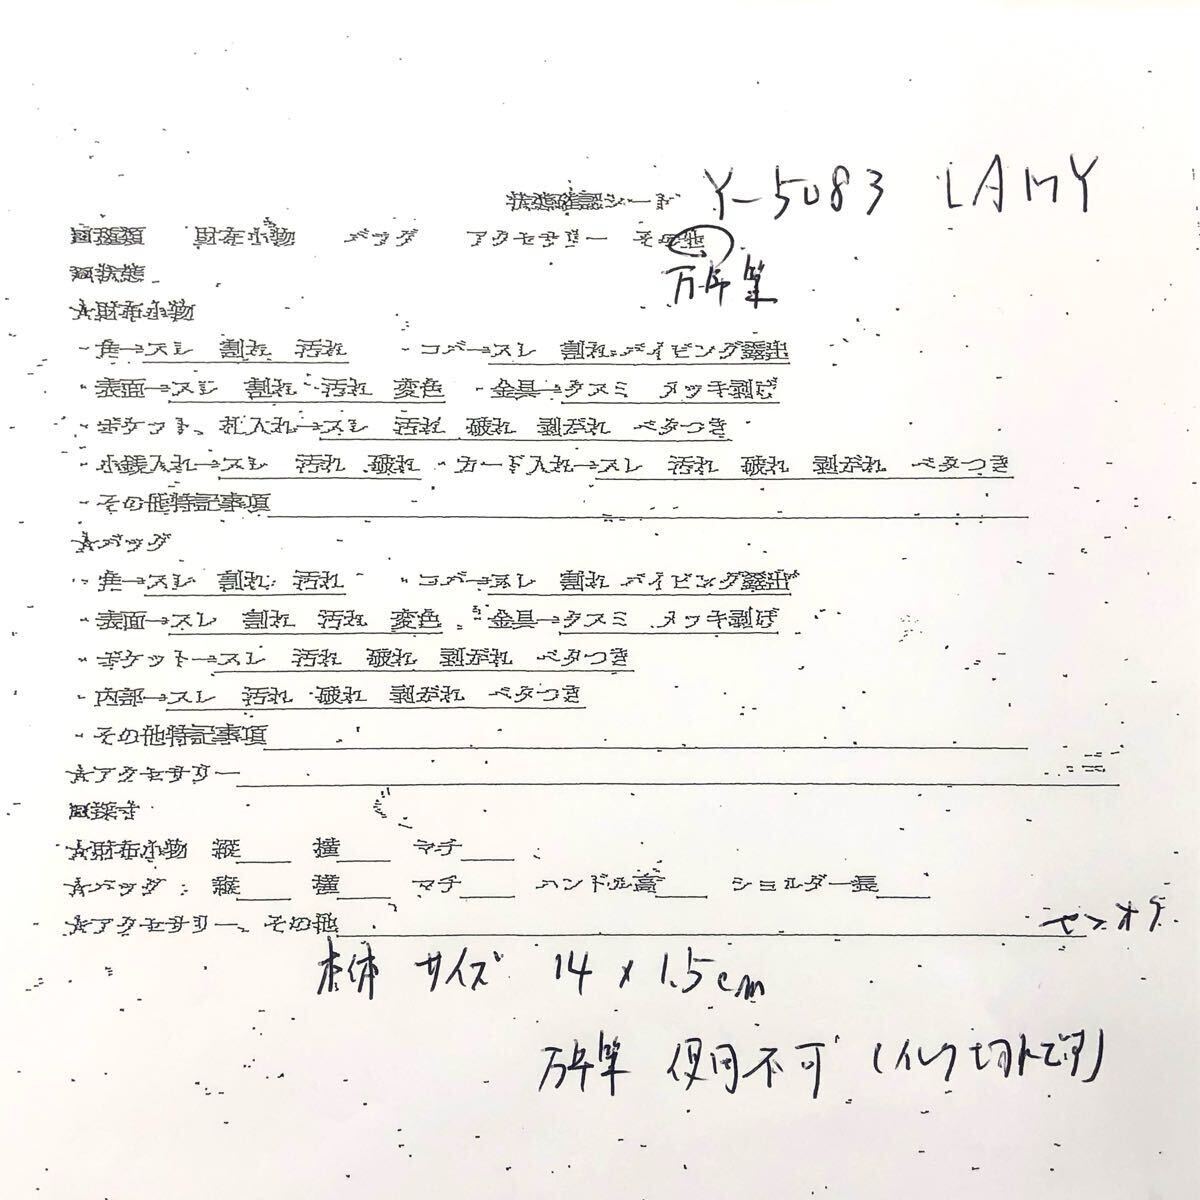 状態確認シート Y-5083 LAMY
□種類 財布小物 バッグ アクセサリー その他
万年筆
□状態
☆財布小物
・角→スレ 割れ 汚れ ・コバ→スレ 割れ パイピング露出
・表面→スレ 割れ 汚れ 変色 ・金具→クスミ メッキ剥げ
・ポケット、札入れ→スレ 汚れ 破れ 剥がれ ベタつき
・小銭入れ→スレ 汚れ 破れ ・カード入れ→スレ 汚れ 破れ 剥がれ ベタつき
・その他特記事項
☆バッグ
・角→スレ 割れ 汚れ ・コバ→スレ 割れ パイピング露出
・表面→スレ 割れ 汚れ 変色 ・金具→クスミ メッキ剥げ
・ポケット→スレ 汚れ 破れ 剥がれ ベタつき
・内部→スレ 汚れ 破れ 剥がれ ベタつき
・その他特記事項
☆アクセサリー
□採寸
☆財布小物 縦 横 マチ
☆バッグ 縦 横 マチ ハンドル高 ショルダー長
☆アクセサリー、その他
本体 サイズ 14 x 1.5cm
万年筆 使用不可 (インク切れです)